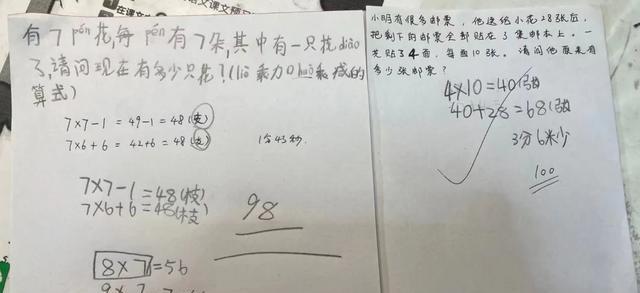 有7pén花,每pén有7朵,其中有一只枕diāo
了,请问现在有多少只花?(liè乘力口huò乘减的
算式)
7×7-1=49-1=48(支)
7×6+6=42+6=48(支)
1分43秒.
7×7-1=48(枝)
7×6+6=48(枝)
98
8×7=56
小明有很多邮票,他送给小花28张后,
把剩下的邮票全部贴在了集邮本上。一
共贴了4面,每面10张。请问他原来有
多少张邮票?
4×10=40(张)
40+28=68(张)
3分6米少
100